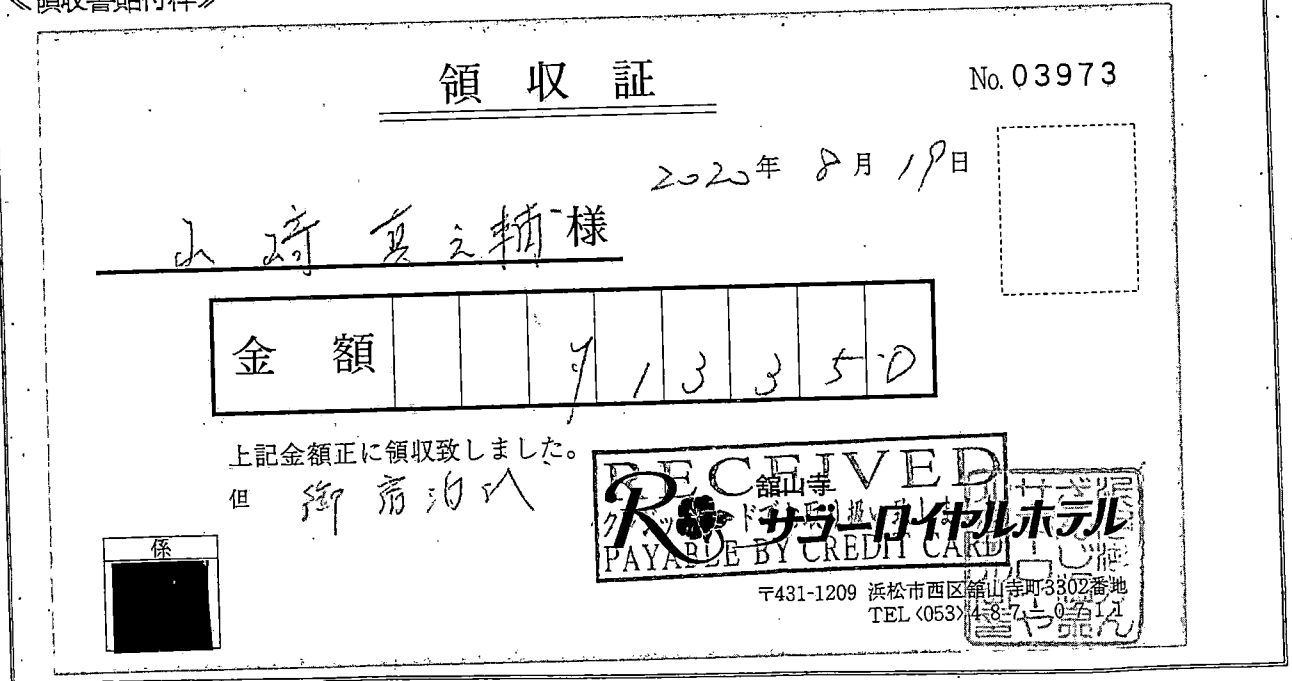 ≪領収書貼付枠≫
領収証
No. 03973
2020年 8月 19日
山崎 真之輔様
金額 ¥133350
上記金額正に領収致しました。
但 御宿泊代
係
RECEIVED
クレジットカードでお取り扱い致しました
PAYABLE BY CREDIT CARD
舘山寺
サゴーロイヤルホテル
〒431-1209 浜松市西区舘山寺町3302番地
TEL〈053〉487-0711